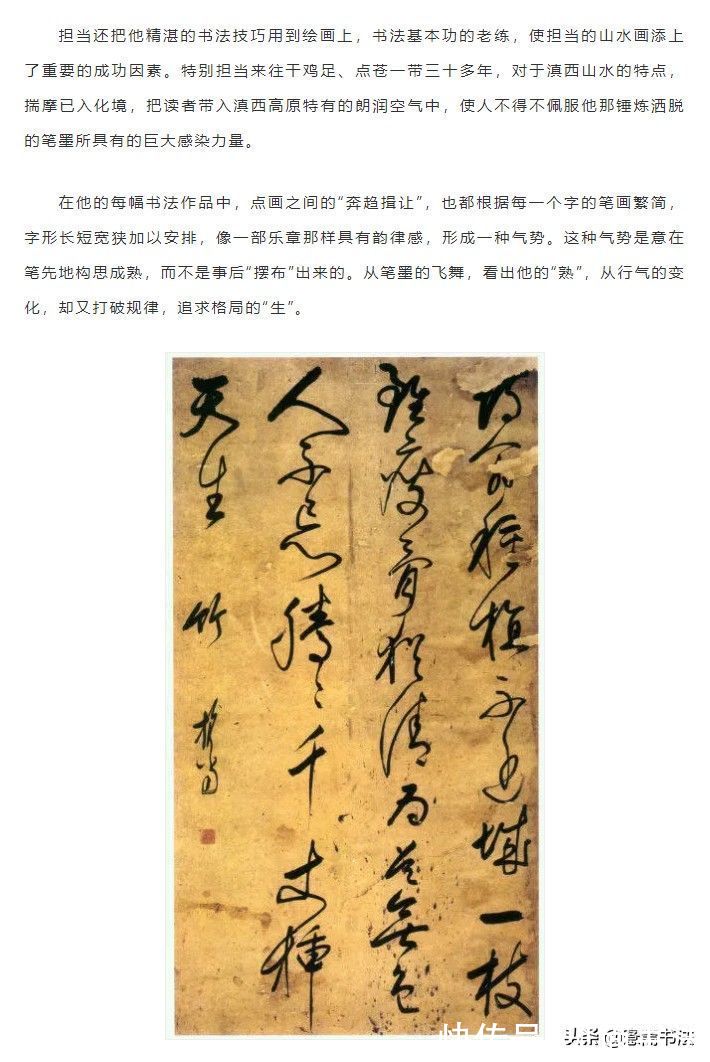 担当还把他精湛的书法技巧用到绘画上，书法基本功的老练，使担当的山水画添上
了重要的成功因素。特别担当来往干鸡足、点苍一带三十多年，对于滇西山水的特点，
揣摩已入化境，把读者带入滇西高原特有的朗润空气中，使人不得不佩服他那锤炼洒脱
的笔墨所具有的巨大感染力量。
在他的每幅书法作品中，点画之间的“奔趋揖让”，也都根据每一个字的笔画繁简，
字形长短宽狭加以安排，像一部乐章那样具有韵律感，形成一种气势。这种气势是意在
笔先地构思成熟，而不是事后“摆布”出来的。从笔墨的飞舞，看出他的“熟”，从行气的变
化，却又打破规律，追求格局的“生”。
種植不城一枝
雖瘦骨猶清為無
人不千丈
天生 竹 擔當
快传号
头条 @书法